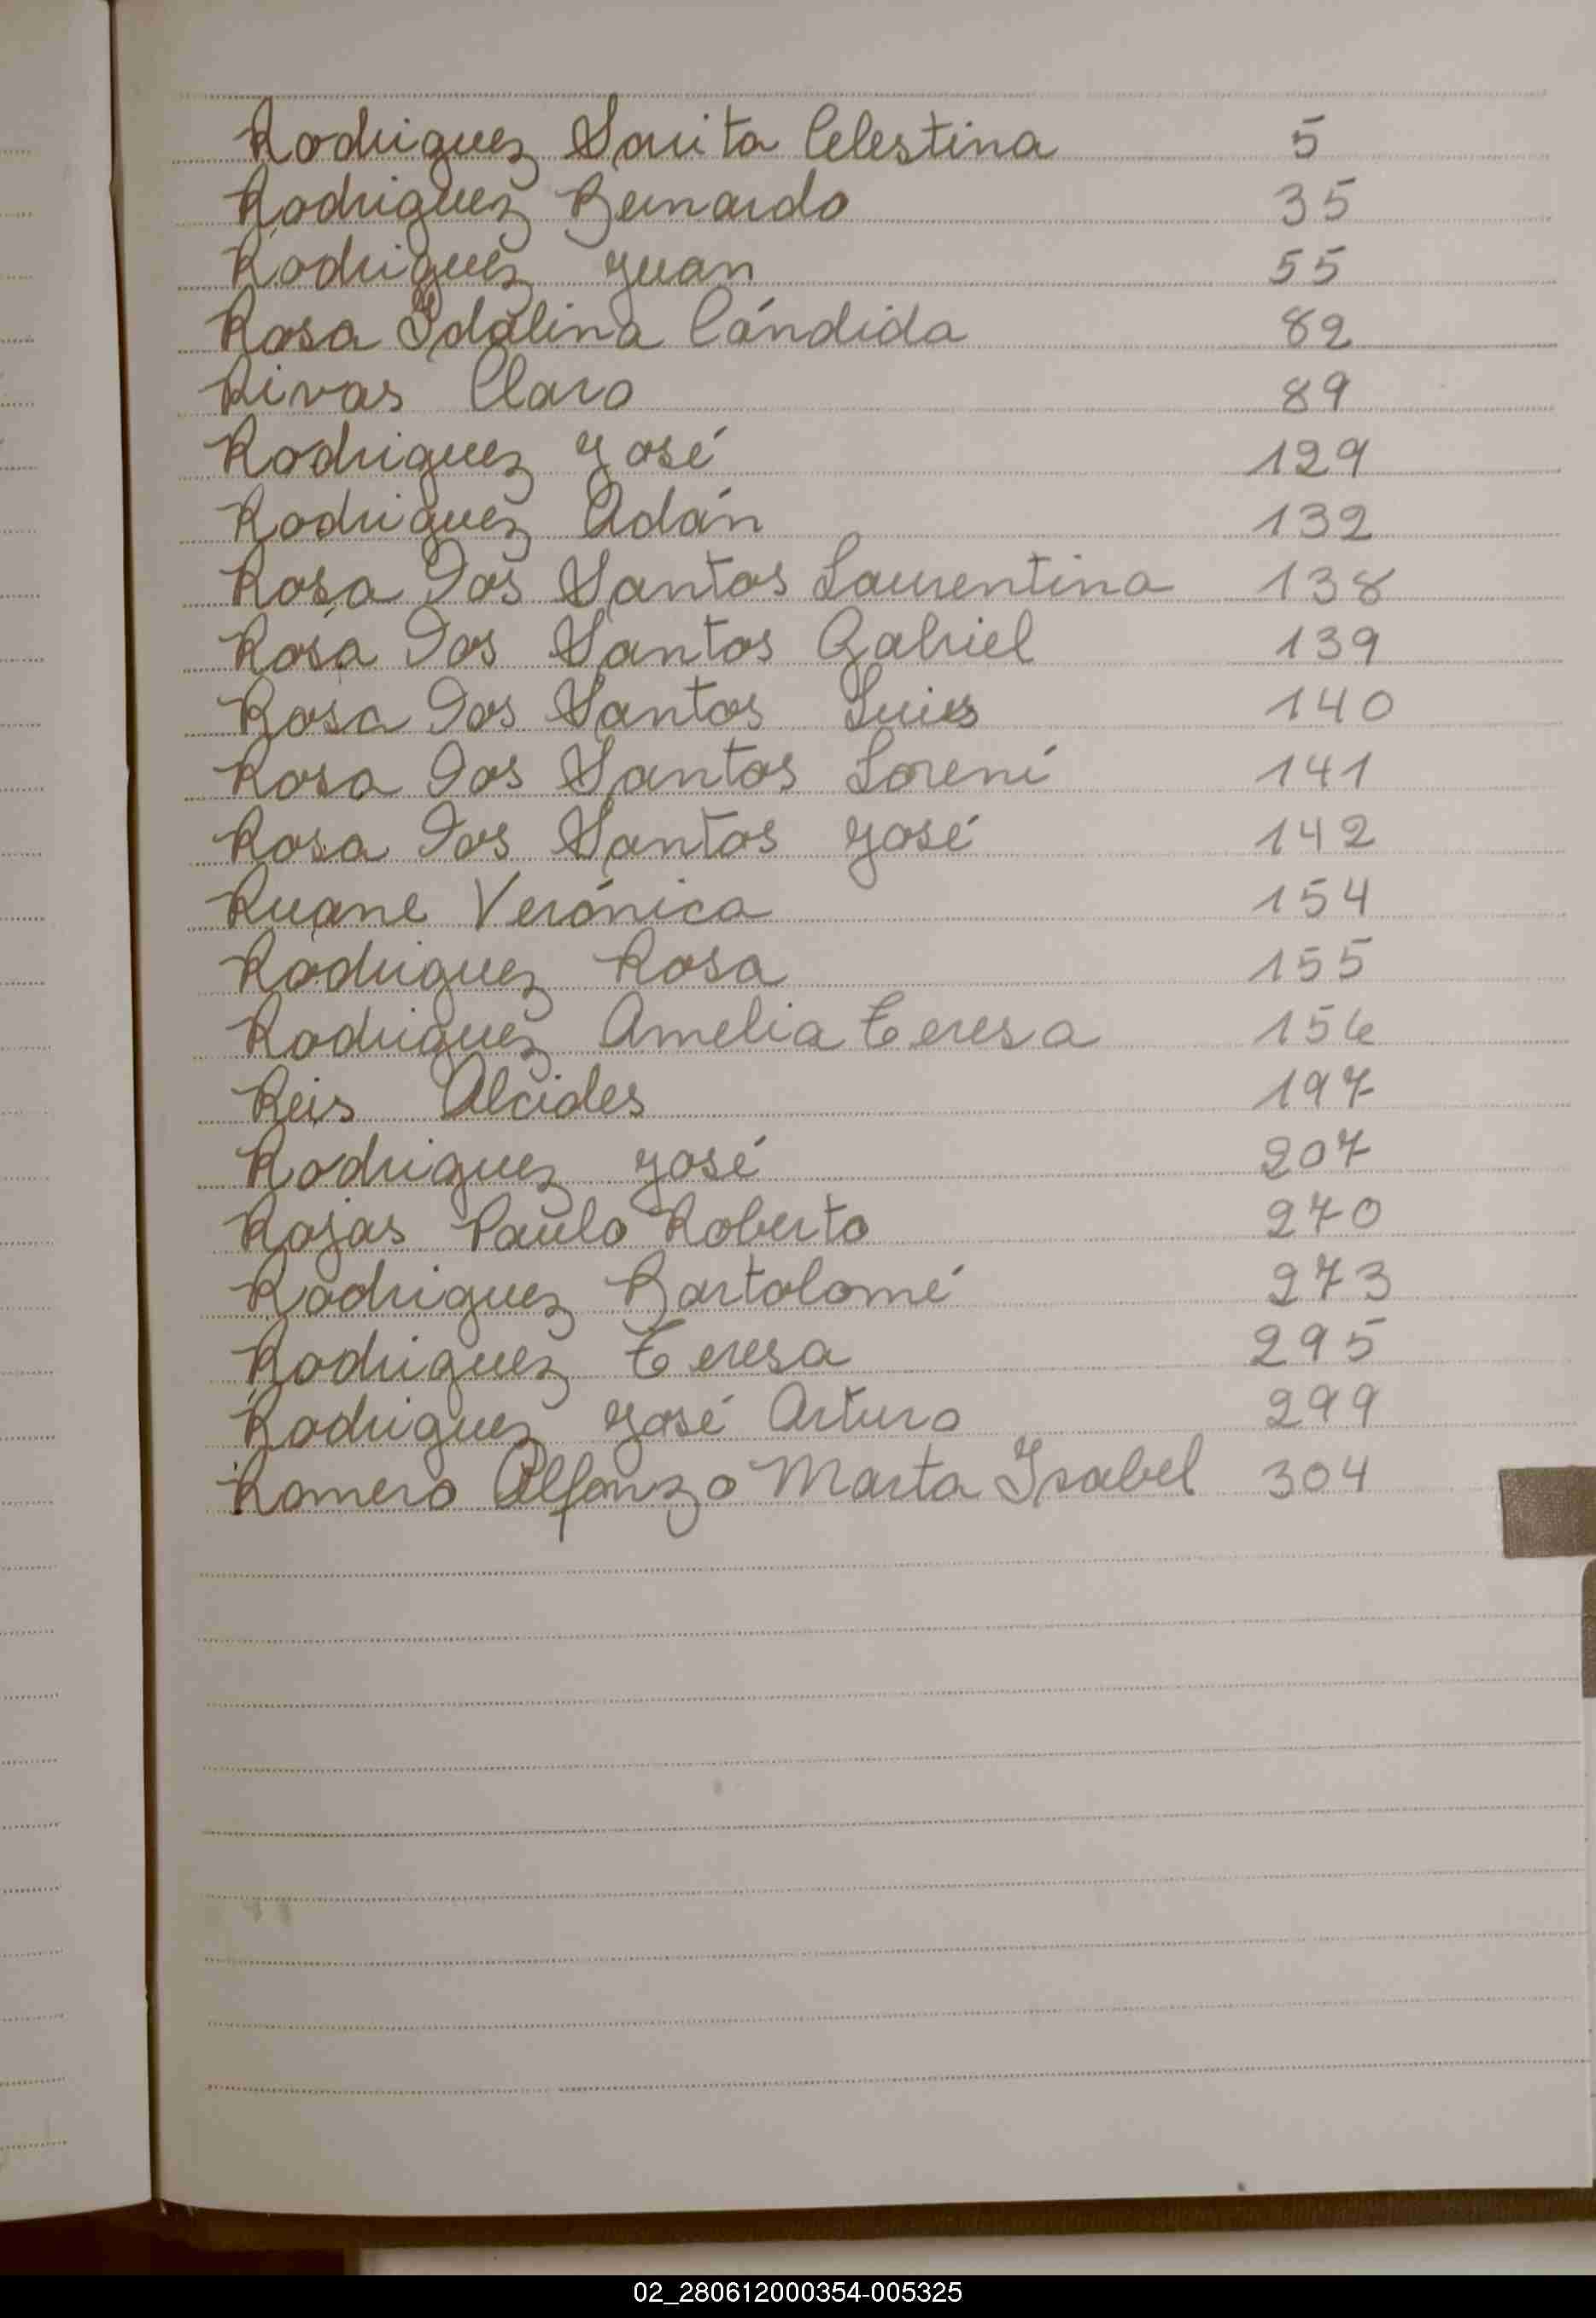 Rodriguez Sarita Celestina 5
Rodriguez Bernardo 35
Rodriguez Juan 55
Rosa Idalina Cándida 82
Rivas Claro 89
Rodriguez José 129
Rodriguez Adán 132
Rosa Dos Santos Laurentina 138
Rosa Dos Santos Gabriel 139
Rosa Dos Santos Luies 140
Rosa Dos Santos Lorení 141
Rosa Dos Santos José 142
Ruane Verónica 154
Rodriguez Rosa 155
Rodriguez Amelia Teresa 156
Reis Alcides 197
Rodriguez José 207
Rojas Paulo Roberto 270
Rodriguez Bartolomé 273
Rodriguez Teresa 295
Rodriguez José Arturo 299
Romero Alfonzo Marta Isabel 304
02_280612000354-005325